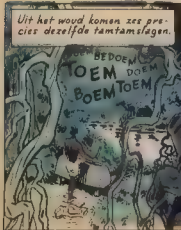 Uit het woud komen zes pre-
cies dezelfde tamtamslagen.
BEDOEM
TOEM DOEM
BOEM TOEM